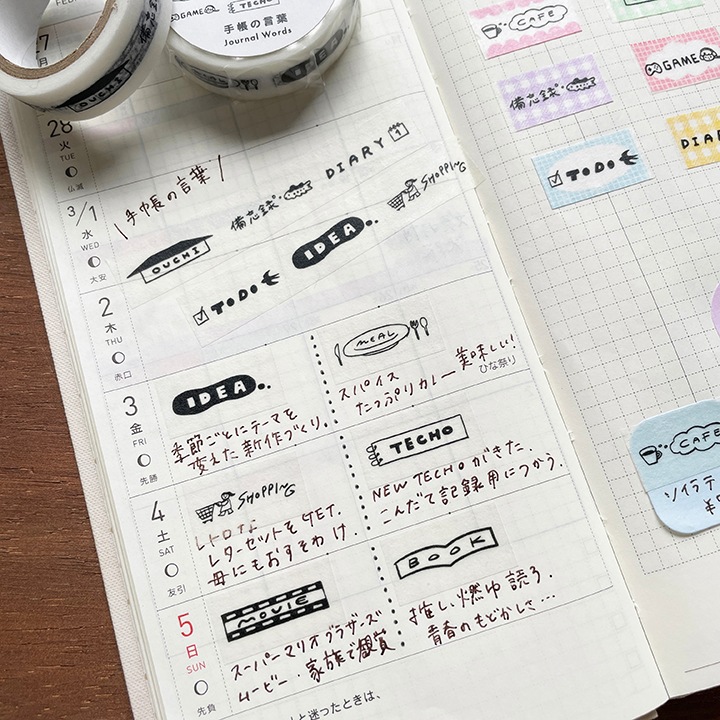 FEBRU
27
月
28
火
TUE
仏滅
3/1
水
WED
大安
2
木
THU
赤口
3
金
FRI
先勝
4
土
SAT
友引
5
日
SUN
先負
OUCHI
GAME
TECHO
手帳の言葉
Journal Words
IDEA
\手帳の言葉/
備忘録
DIARY
1
OUCHI
TODO
IDEA
SHOPPING
IDEA
季節ごとにテーマを
変えた新作づくり。
MEAL
スパイス
たっぷりカレー美味しい!
ひな祭り
SHOPPING
レトロな
レターセットをGET.
母にもおすそわけ.
TECHO
NEW TECHOがきた.
こんだて記録用につかう.
MOVIE
スーパーマリオブラザーズ
ムービー・家族で観賞
BOOK
推し、燃ゆ 読う.
青春のもどかしさ...
と迷ったときは、
CAFE
GAME
備忘録
DIAR
TODO
CAFE
ソイラテ